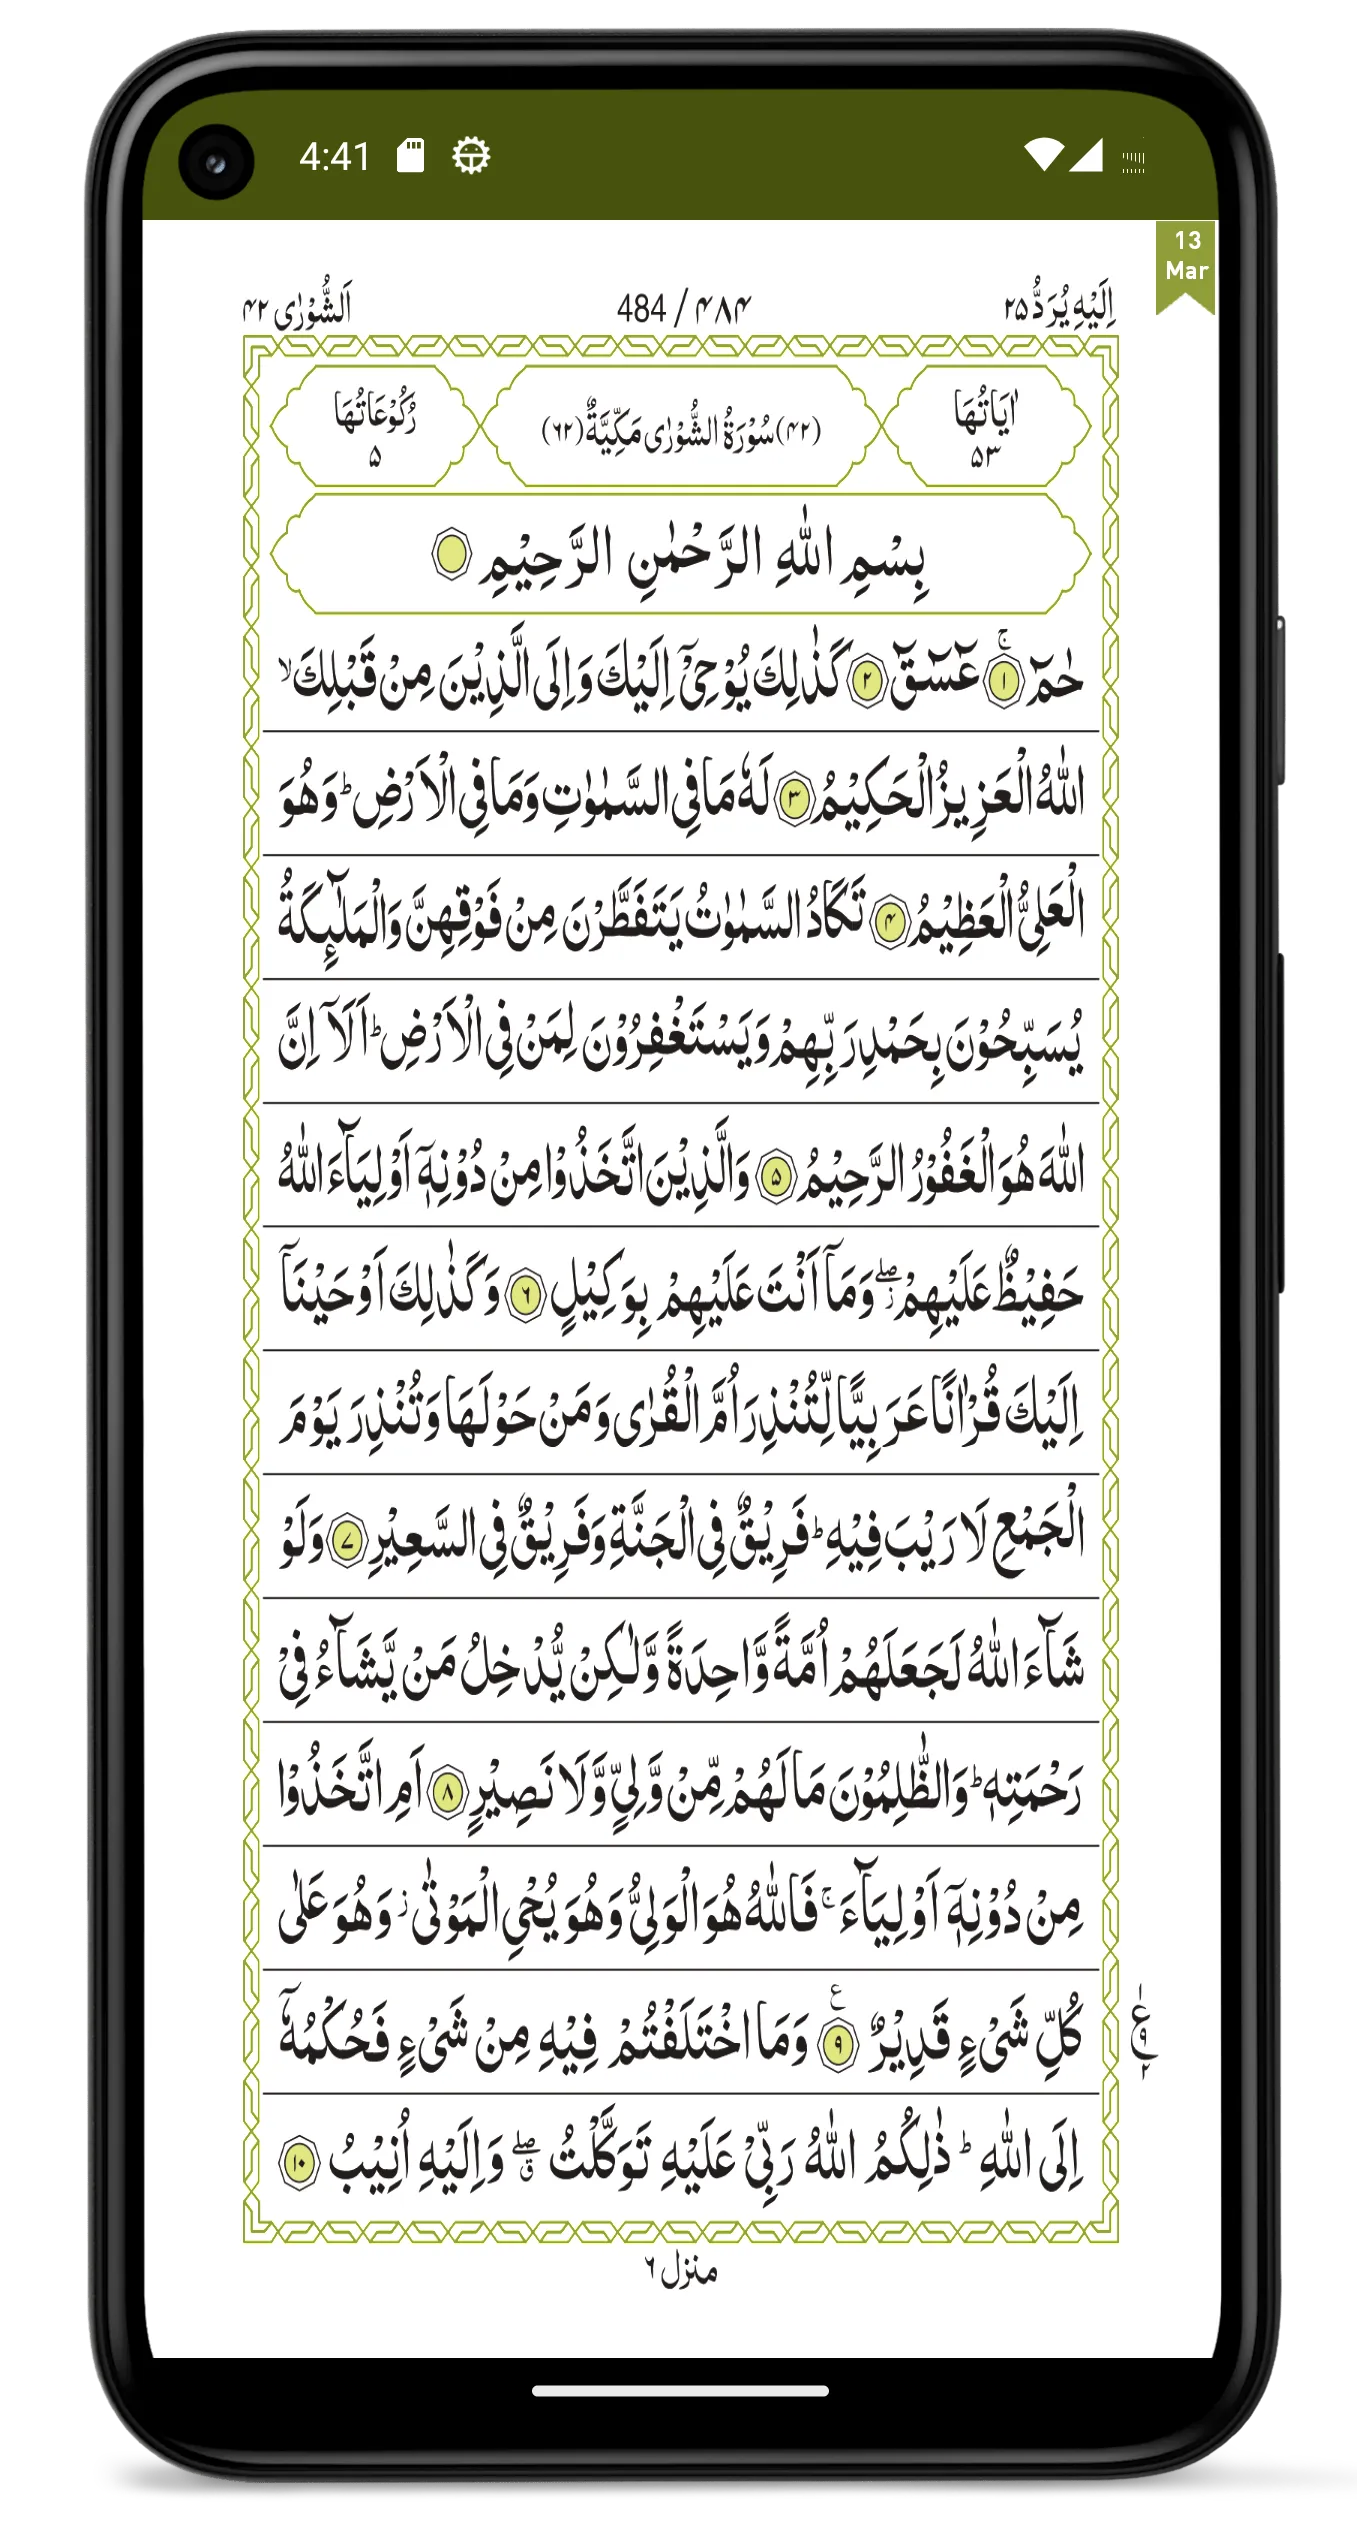 4:41
13
Mar
اِلَيْهِ يُرَدُّ ۲۵
484 / ۴۸۴
اَلشُّوْرٰى ۴۲
اٰيَاتُهَا
۵۳
(۴۲) سُوْرَةُ الشُّوْرٰى مَكِّيَّةٌ (۶۲)
رُكُوْعَاتُهَا
۵
بِسْمِ اللّٰهِ الرَّحْمٰنِ الرَّحِيْمِ
حٰمٓ ۚ ﴿۱﴾ عٓسٓقٓ ﴿۲﴾ كَذٰلِكَ يُوْحِىْۤ اِلَيْكَ وَاِلَى الَّذِيْنَ مِنْ قَبْلِكَ ۙ
اللّٰهُ الْعَزِيْزُ الْحَكِيْمُ ﴿۳﴾ لَهٗ مَا فِى السَّمٰوٰتِ وَمَا فِى الْاَرْضِ ؕ وَهُوَ
الْعَلِىُّ الْعَظِيْمُ ﴿۴﴾ تَكَادُ السَّمٰوٰتُ يَتَفَطَّرْنَ مِنْ فَوْقِهِنَّ وَالْمَلٰٓئِكَةُ
يُسَبِّحُوْنَ بِحَمْدِ رَبِّهِمْ وَيَسْتَغْفِرُوْنَ لِمَنْ فِى الْاَرْضِ ؕ اَلَاۤ اِنَّ
اللّٰهَ هُوَ الْغَفُوْرُ الرَّحِيْمُ ﴿۵﴾ وَالَّذِيْنَ اتَّخَذُوْا مِنْ دُوْنِهٖۤ اَوْلِيَآءَ اللّٰهُ
حَفِيْظٌ عَلَيْهِمْ ۖ ز وَمَاۤ اَنْتَ عَلَيْهِمْ بِوَكِيْلٍ ﴿۶﴾ وَكَذٰلِكَ اَوْحَيْنَاۤ
اِلَيْكَ قُرْاٰنًا عَرَبِيًّا لِّتُنْذِرَ اُمَّ الْقُرٰى وَمَنْ حَوْلَهَا وَتُنْذِرَ يَوْمَ
الْجَمْعِ لَا رَيْبَ فِيْهِ ؕ فَرِيْقٌ فِى الْجَنَّةِ وَفَرِيْقٌ فِى السَّعِيْرِ ﴿۷﴾ وَلَوْ
شَآءَ اللّٰهُ لَجَعَلَهُمْ اُمَّةً وَّاحِدَةً وَّلٰكِنْ يُّدْخِلُ مَنْ يَّشَآءُ فِىْ
رَحْمَتِهٖ ؕ وَالظّٰلِمُوْنَ مَا لَهُمْ مِّنْ وَّلِىٍّ وَّلَا نَصِيْرٍ ﴿۸﴾ اَمِ اتَّخَذُوْا
مِنْ دُوْنِهٖۤ اَوْلِيَآءَ ۚ فَاللّٰهُ هُوَ الْوَلِىُّ وَهُوَ يُحْىِ الْمَوْتٰى ز وَهُوَ عَلٰى
كُلِّ شَىْءٍ قَدِيْرٌ ﴿۹﴾ ع وَمَا اخْتَلَفْتُمْ فِيْهِ مِنْ شَىْءٍ فَحُكْمُهٗۤ
۱ ع ۹ ۲
اِلَى اللّٰهِ ؕ ذٰلِكُمُ اللّٰهُ رَبِّىْ عَلَيْهِ تَوَكَّلْتُ ۖ ق وَاِلَيْهِ اُنِيْبُ ﴿۱۰﴾
منزل ۶